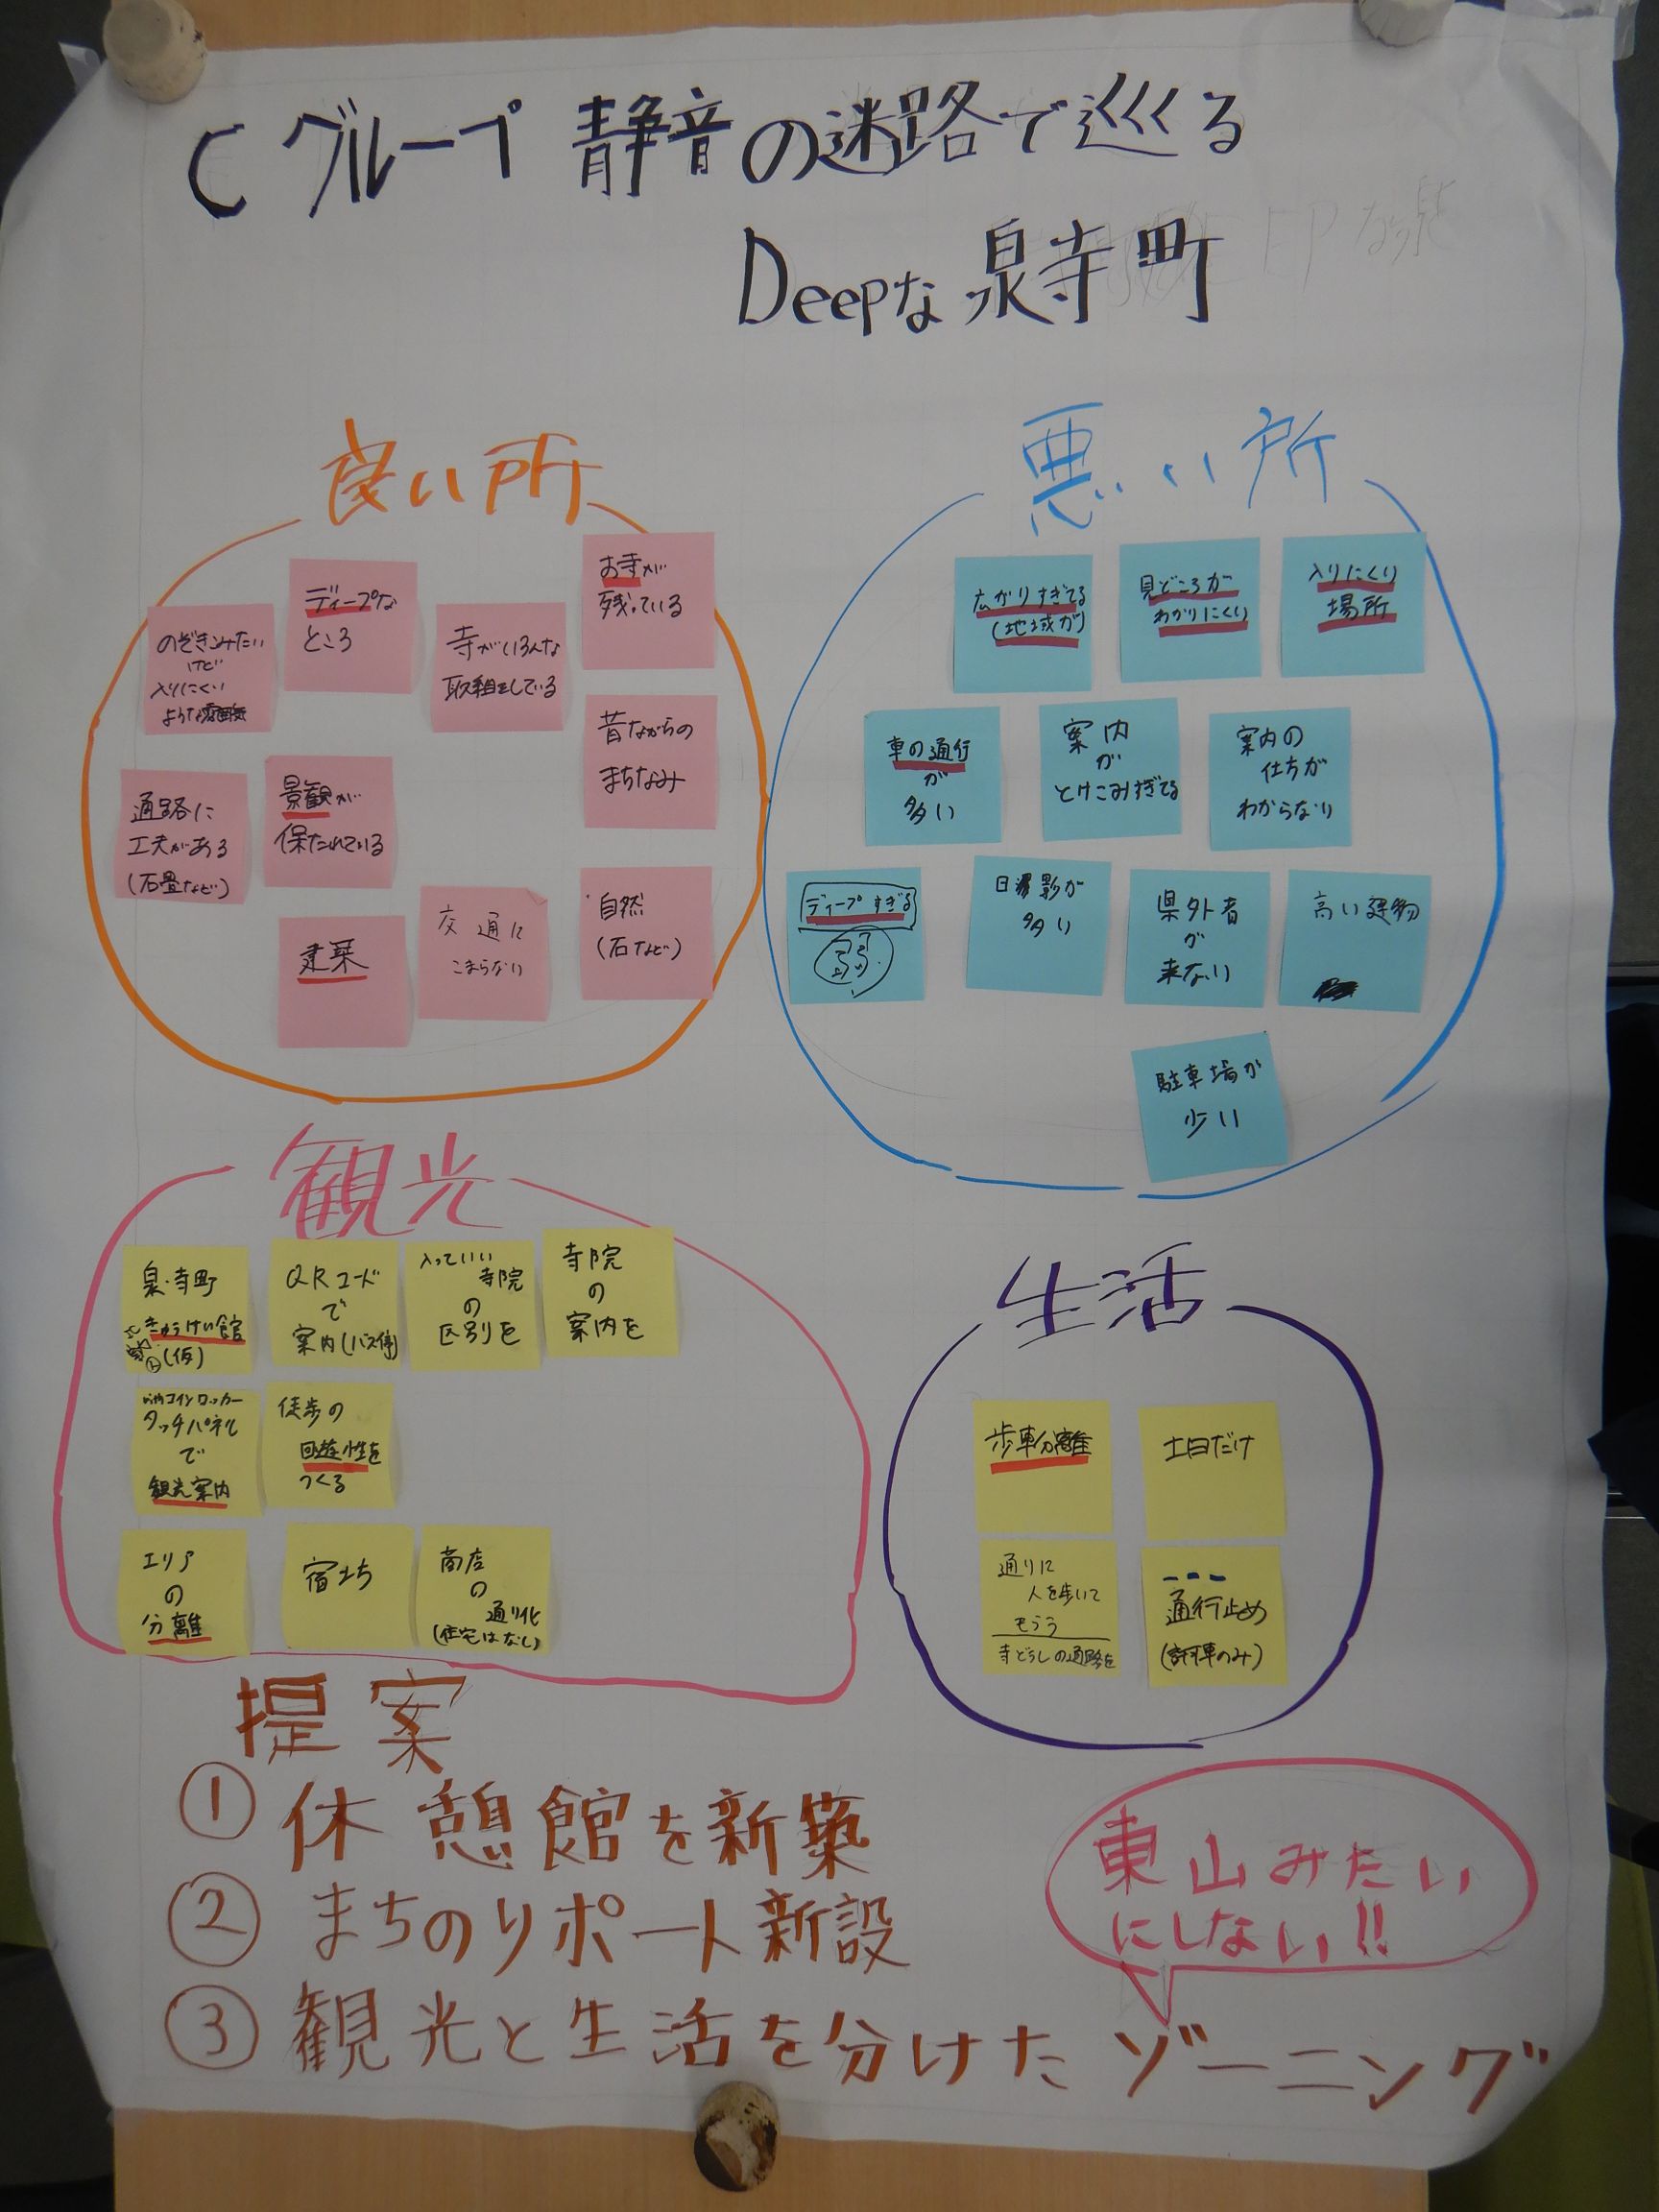 Cグループ 静音の迷路で巡る
Deepな泉寺町
良い所
のぞきこみたい
けど
入りにくい
ような雰囲気
ディープな
ところ
寺がいろんな
取組をしている
お寺が
残っている
昔ながらの
まちなみ
通路に
工夫がある
(石畳など)
景観が
保たれている
建築
交通に
こまらない
自然
(石など)
悪い所
広がりすぎてる
(地域が)
見どころが
わかりにくい
入りにくい
場所
車の通行
が
多い
案内
が
とけこみすぎてる
案内の
仕方が
わからない
ディープすぎる
日影が
多い
県外者
が
来ない
高い建物
駐車場が
少い
観光
泉・寺町
きゅうけい館
(仮)
QRコード
で
案内(バス停)
入っていい
寺院
の
区別を
寺院
の
案内を
コインロッカー
タッチパネル
で
観光案内
徒歩の
回遊性を
つくる
エリア
の
分離
宿まち
商店
の
通り化
(住宅はなし)
生活
歩車分離
土日だけ
通りに
人を歩いて
もらう
寺どうしの通路を
通行止め
(許可車のみ)
提案
① 休憩館を新築
② まちのりポート新設
③ 観光と生活を分けたゾーニング
東山みたい
にしない!!